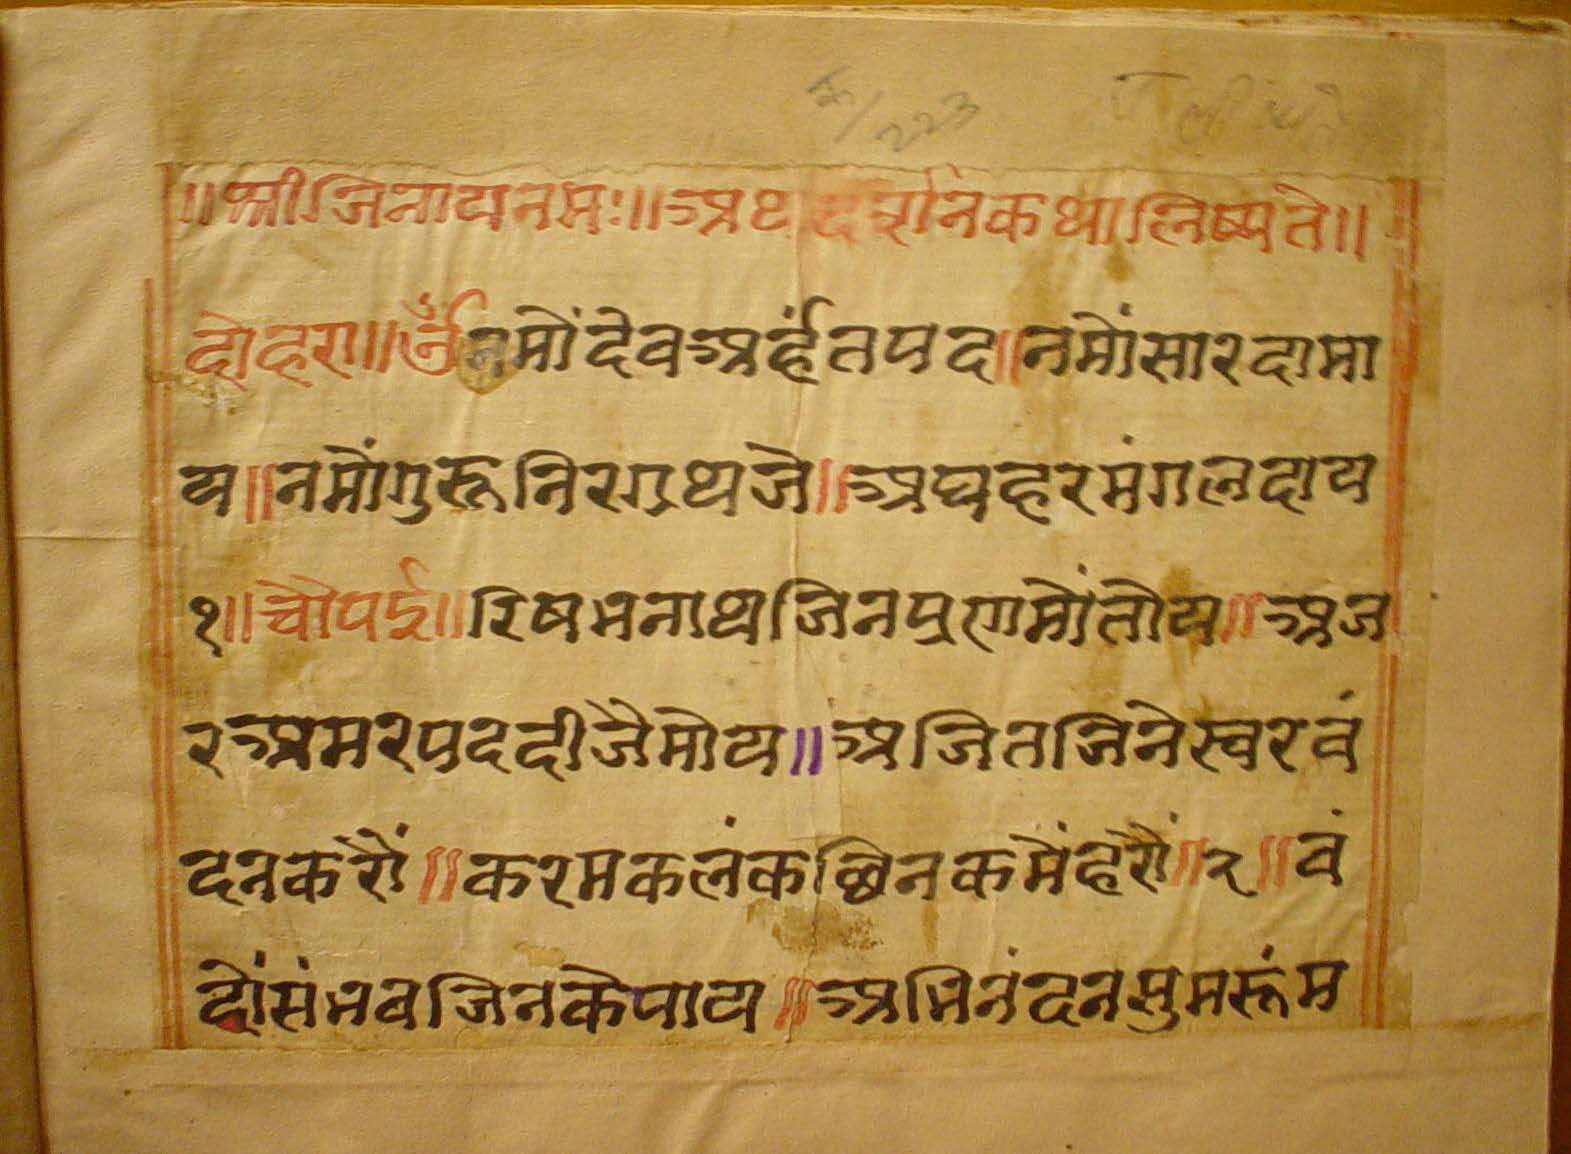 क/223
॥श्रीजिनायनमः॥अथदर्शनकथालिष्यते॥
दोहरा॥ॐनमोंदेवअर्हंतपद॥नमोंसारदामा
य॥नमोंगुरूनिरग्रथजे॥अघहरमंगलदाय
१॥चौपई॥रिषभनाथजिनप्रणमोंतोय॥अज
रअमरपददीजैमोय॥अजितजिनेस्वरवं
दनकरौं॥करमकलंकछिनकमैंहरौं॥२॥वं
दोंसंभवजिनकेपाय॥अभिनंदनसुमरूंम